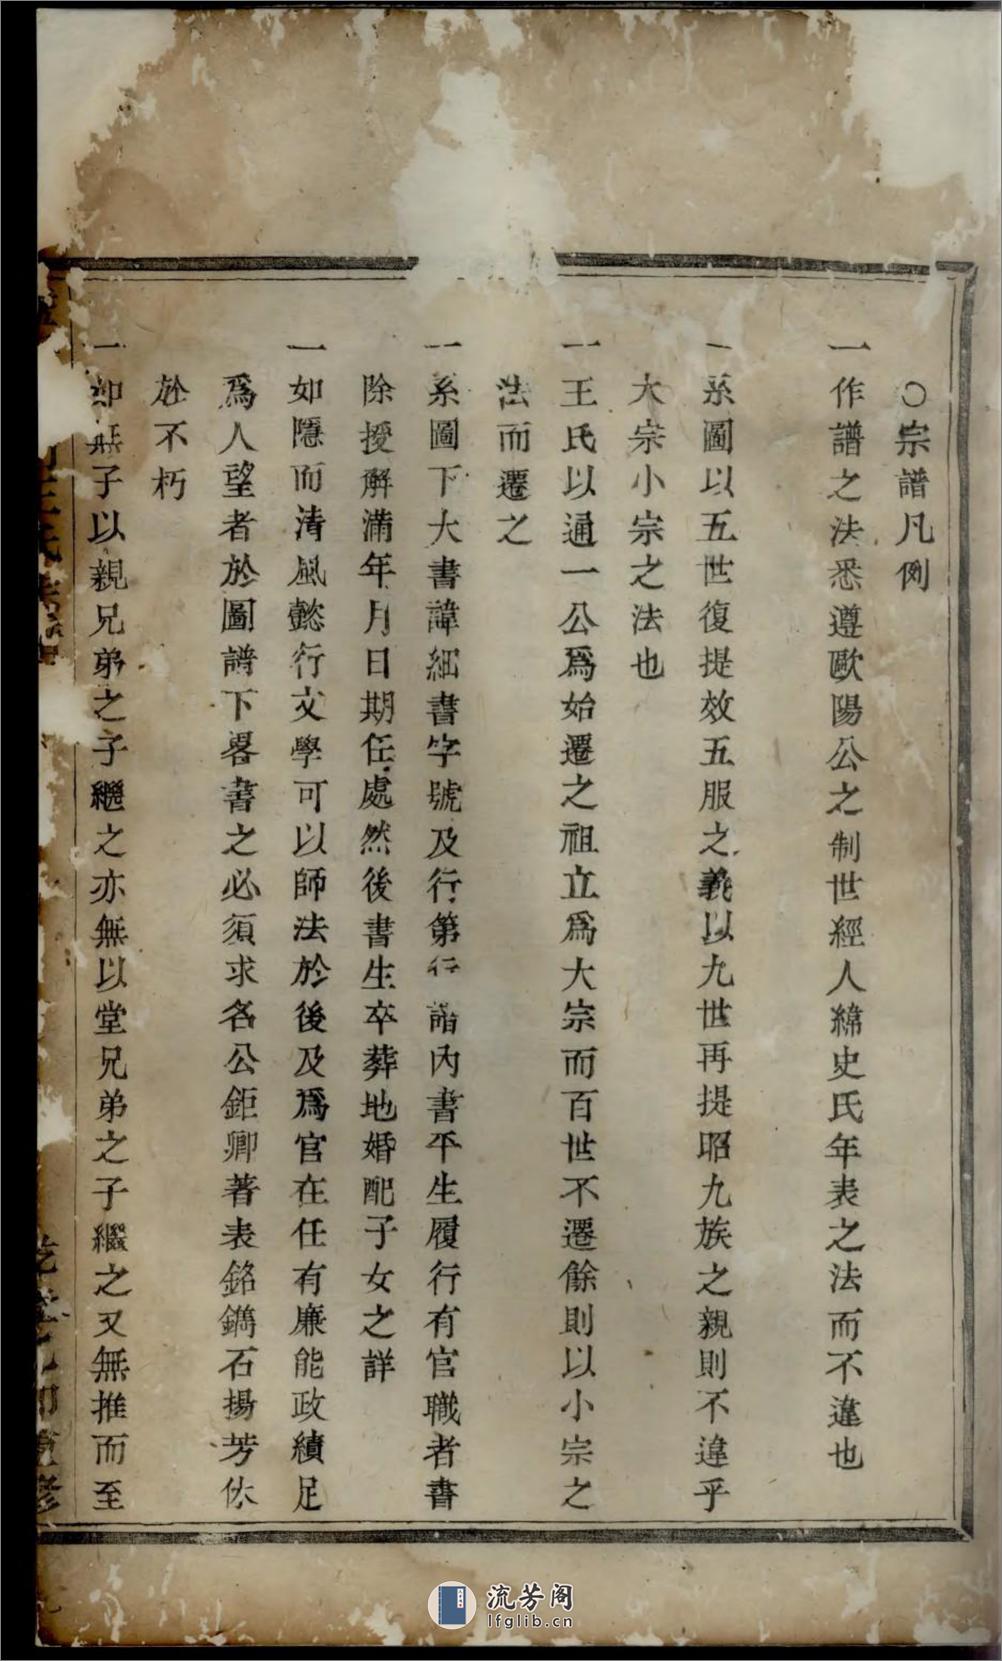 ○宗譜凡例
一作譜之法悉遵歐陽公之制世經人緯史氏年表之法而不違也
一系圖以五世復提效五服之義以九世再提昭九族之親則不違乎
大宗小宗之法也
一王氏以通一公爲始遷之祖立爲大宗而百世不遷餘則以小宗之
法而遷之
一系圖下大書諱細書字號及行第行 譜內書平生履行有官職者書
除授解滿年月日期任處然後書生卒葬地婚配子女之詳
一如隱而清風懿行文學可以師法於後及爲官在任有廉能政績足
爲人望者於圖譜下畧書之必須求名公鉅卿著表銘鐫石揚芳休
於不朽
一如無子以親兄弟之子繼之亦無以堂兄弟之子繼之又無推而至
王氏族譜
乾隆 卯重修
流芳阁
lfglib.cn